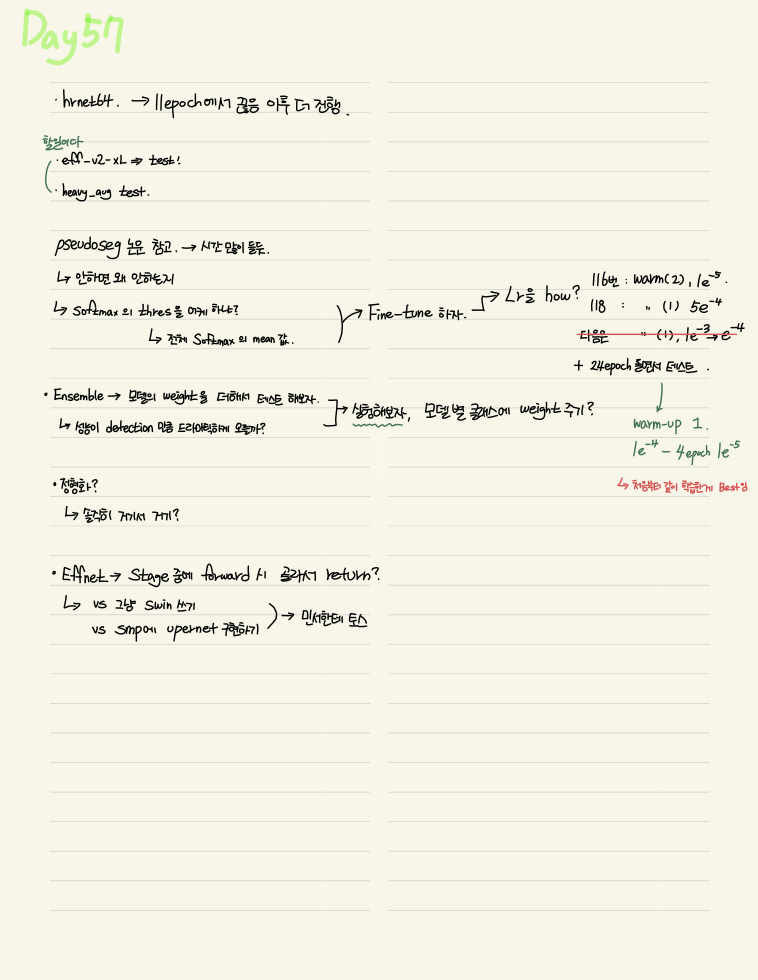 Day57
· hrnet64. → 11epoch에서 끊음 이후 더 진행.
할일이다
· eff-v2-xL ⇒ test!
· heavy_aug test.
pseudoseg 논문 참고. → 시간 많이 들듯.
↳ 안하면 왜 안하는지
↳ Softmax 의 thres을 어케 하냐?
↳ 전체 Softmax의 mean 값.
→ Fine-tune 하자. → Lr을 how?
116번 : warm(2), 1e⁻⁵.
118 : " (1) 5e⁻⁴
다음은 " (1), 1e⁻³→e⁻⁴
+ 24epoch 돌면서 테스트.
warm-up 1.
1e⁻⁴ - 4epoch 1e⁻⁵
↳ 처음부터 같이 학습한게 Best임
· Ensemble → 모델의 weight을 더해서 테스트 해보자.
↳ 성능이 detection 만큼 드라마틱하게 오를까?
→ 실험해보자, 모델별 클래스에 weight 주기?
· 정형화?
↳ 솔직히 거기서 거기?
· Effnet → Stage 중에 forward 시 골라서 return?
↳ vs 그냥 swin 쓰기
vs smp에 upernet 구현하기
→ 민서한테 토스